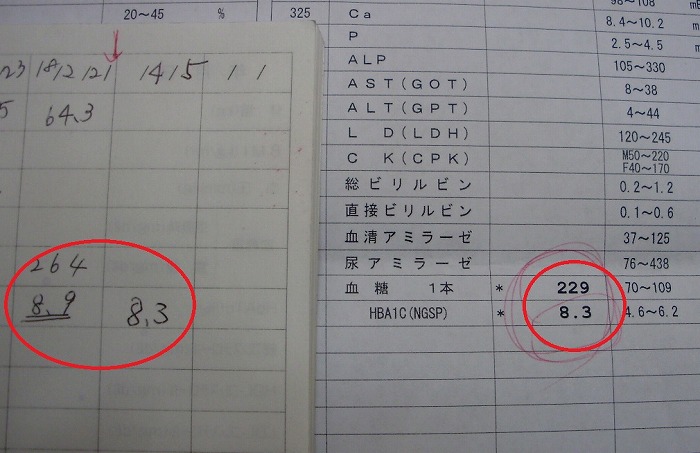 20～45 %
325 Ca
8.4～10.2
P 2.5～4.5
ALP 105～330
AST(GOT) 8～38
ALT(GPT) 4～44
L D(LDH) 120～245
C K(CPK) M50～220
F40～170
総ビリルビン 0.2～1.2
直接ビリルビン 0.1～0.6
血清アミラーゼ 37～125
尿アミラーゼ 76～438
血糖 1本 * 229 70～109
HBA1C(NGSP) * 8.3 4.6～6.2
64.3
264
8.9 8.3